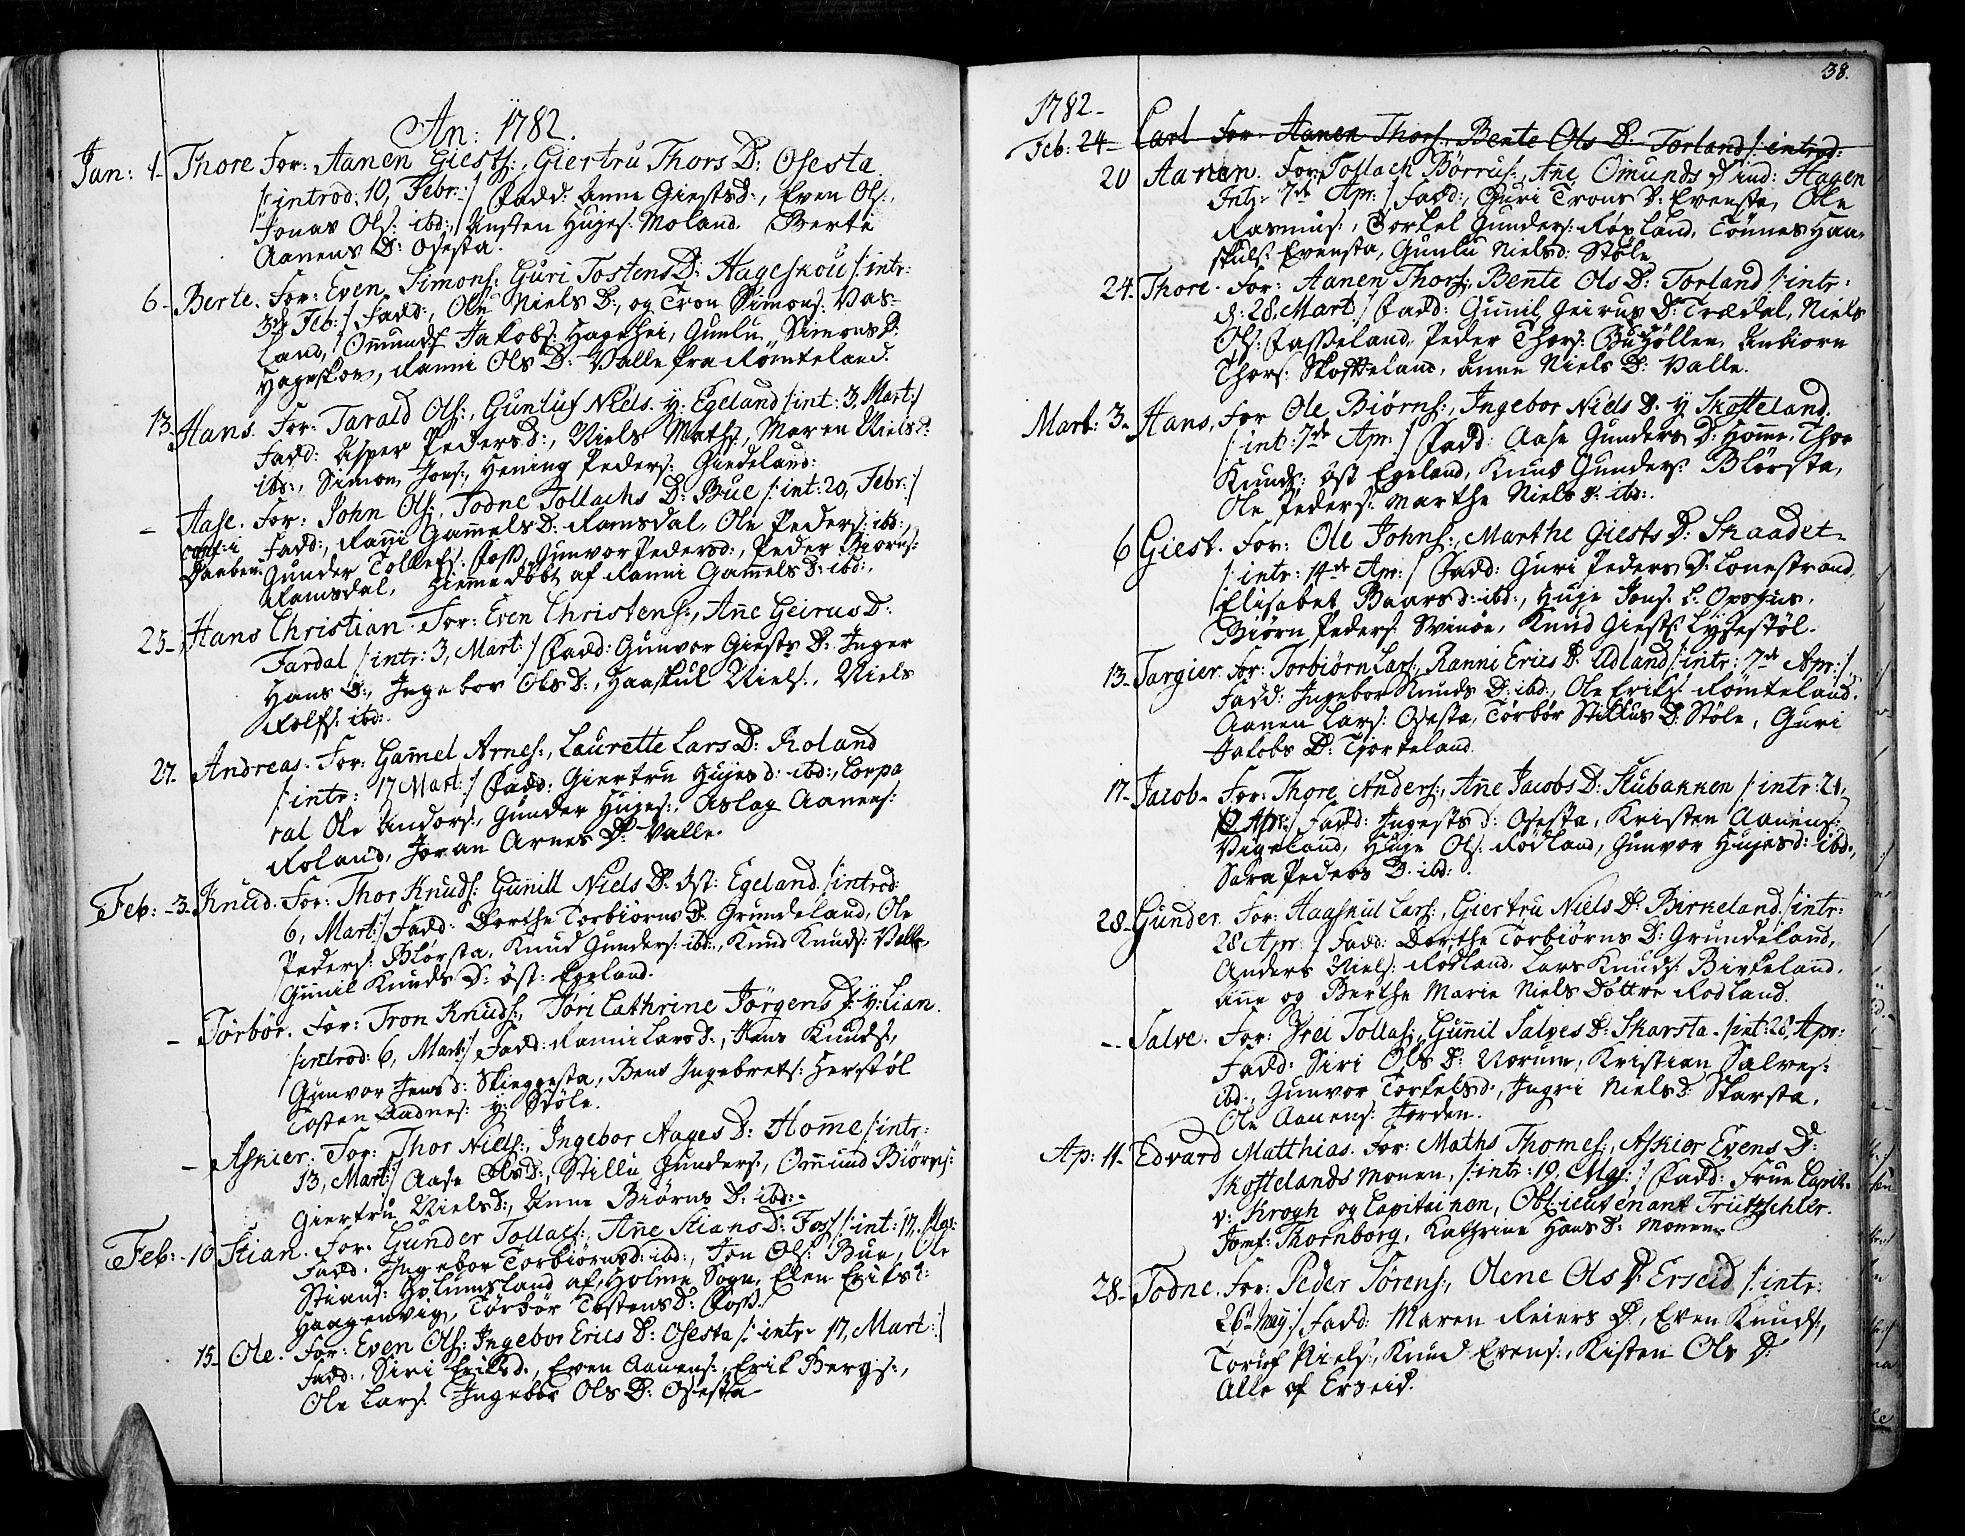 An: 1782.
Jan: 1- Thore For: Aanen Giests:, Giertru Thors D: Osesta
/: introd: 10, Febr: :/ Fadd: Anne GiestsD:, Even Ols:,
Jonas Ols: ibd:, Austen Hujes: Moland. Berte
Aanens D: Osesta.
6- Berte. For: Even Simons: Guri Tostens D: Hageskou /: intr:
3die Feb: :/ Fadd:, Niels D:, og Tron Simons: Vas-
land, Omunds Jakobs: Hagehei, Gunlu Simons D:
Hageskou, Ranni Ols D: Valle fra Rømteland.
13. Hans. For: Tarald Ols:, Gunluf Niels. y: Egeland /: int: 3, Mart: :/
Fadd: Asper Peders D:, Niels Maths:, Maren Niels D:
ibd:, Simon Jons:, Hening Peders: Giedeland:
- Aase. For: John Ols:, Todne Tollachs D: Bue /: int: 20, Febr: :/
Fadd:, Ranni Gamels D: Ramsdal, Ole Peders: ibd:,
Gunder Tollefs: Foss, Gunvor Pedersd:, Peder Biorns:
Ramsdal, Hiemmedøbt af Ranni Gamels D: ibd:,
25- Hans Christian. For: Even Christens:, Ane Geirus D:
Fardal /: intr: 3, Mart: :/ Fadd: Gunvor Giests D: Inger
Hans D:, Ingebor Ols D:, Haaskul Niels:, Niels
Rolfs: ibd:.
27. Andreas. For: Gamel Arnes:, Laurette Lars D: Roland
/: intr: 17 Mart: :/ Fadd: Giertru Hujes D: ibd:, Corpo
ral Ole Anders:, Gunder Hujes:, Aslag Aanens:
Roland, Joran Arnes D: Valle.
Feb: -3. Knud. For: Thor Knuds: Gunill Niels D: Øst: Egeland. /: introd:
6, Mart: :/ Fadd: Dorthe Torbiørns D: Grundeland, Ole
Peders: Blørsta, Knud Gunders: ibd:, Knud Knuds: Valle,
Gunil Knuds D: Øst: Egeland.
- Torbør. For: Tron Knuds:, Tøri Cathrine Jørgens D: y: Lian.
/: introd: 6, Mart: :/ Fadd: Ranni Lars D:, Hans Knuds:,
Gunvor Jens D: Skieggesta, Bens Ingebrets: Herstøl
Tosten Aadnes: y: Støle.
- Askier. For: Thor Niels:, Ingebor Aages D: Home /: intr:
13, Mart: :/ Aase Ols D:, Stillu Gunders:, Omund Biørns:
Giertru Niels D:, Anne Biørns D: ibd:-
Feb: -10 Stian. For: Gunder Tollacs:, Ane Stians D: Foss /: int: 17,
Fadd: Ingebor Torbiørns D: ibd:, Jon Ols: Bue, Ole
Stians: Holumsland af Holme Sogn, Elen Eriks D:
Haagenvig, Torbør Tostens D: Foss.
15- Ole. For: Even Ols: Ingebor Erics D: Osesta /: intr: 17, Mart: :/
Fadd:, Siri Eriks D:, Even Aanens:, Erik Bergs:,
Ole Lars: Ingebor Ols D: Osesta
38.
1782-
Feb: 24- Carl For: Aanen Thors:, Bente Ols D: Torland /: introd:
20 Aanen. For: Tollach Børrus:, Ane Omunds D ind: Hagen
Intr: 7de Apr: :/ Fadd:, Guri Trons D: Evensta, Ole
Rasmus:, Torkel Gunders: Røpland, Tønnes Haa-
skuls: Evensta, Gunlu Niels d: Støle
24- Thore. For: Aanen Thors:, Bente Ols D: Torland /: intr:
d: 28, Mart: :/ Fadd: Gunil Geirus D: Trædal, Niels
Ols: Fasseland, Peder Thors: Buhøllen, Anbiorn
Thors: Skofteland, Anne Niels D: Valle.
Mart: 3- Hans, For Ole Biørns:, Ingebor Niels D: y Skofteland.
/: int: 7de Apr: :/ Fadd: Aase Gunders D: Home, Thor
Knuds: Øst Egeland, Knud Gunders: Blørsta,
Ole Peders: Marthe Niels D: ibd:.
6 Giest. For: Ole Johns:, Marthe Giests D: Skaadet-
/: intr: 14de Apr: :/ Fadd: Guri Peders D: Lonestrand,
Elisabet Baars D: ibd:, Huje Jons:
Biørn Peders: Svinøe, Knud Giests: Lysestøl.
13- Targier. For: Torbiørn Lars:, Ranni Erics D: Adland /: intr: 7de Apr: :/
Fadd: Ingebor Knuds D: ibd:, Ole Eriks: Rømteland.
Aanen Lars: Osesta, Torbør Stillus D: Støle, Guri
Jakobs D: Tjorteland.
17- Jacob- For: Thore Anders:, Ane Jacobs D: Stubakken /: intr: 21,
Apr: :/ Fadd: Ingests D: Osesta, Kristen Aanens:
Vigeland, Huje Ols: Rødland, Gunvor Hujes D: ibd:,
Sara Peders D: ibd:.
28- Gunder. For: Haaskul Lars:, Giertru Niels D: Birkeland. /: intr:
28 Apr: :/ Fadd: Dorthe Torbiørns D: Grundeland,
Anders Niels: Rødland, Lars Knuds: Birkeland.
Ane og Berthe Marie Niels Døttre Rødland.
-- Salve. For: Drei Tollas:, Gunil Salves D: Skarsta- /: int: 28, Apr:
Fadd: Siri Ols D: Norum, Kristian Salves:
ibd:, Gunvor Torkels D:, Ingri Niels D: Skarsta,
Ole Aanens: Jorden.
Ap: 11- Edvard Matthias. For: Maths Thomes:, Askier Evens D:
Skoftelands Monen, /: intr: 19, Maj: :/ Fadd: Frue Capit-
v: Krogh og Capitainen, ObLieutenant Trütschler.
Jomf: Thornborg, Kathrine Hans D: Monen-
28- Todne. For: Peder Sørens:, Olene Ols D: Erseid /: intr:
26- May :/ Fadd: Maren Reiers D:, Even Knuds:,
Toruf Niels:, Knud Evens:, Kisten Ols D:
Alle af Erseid.